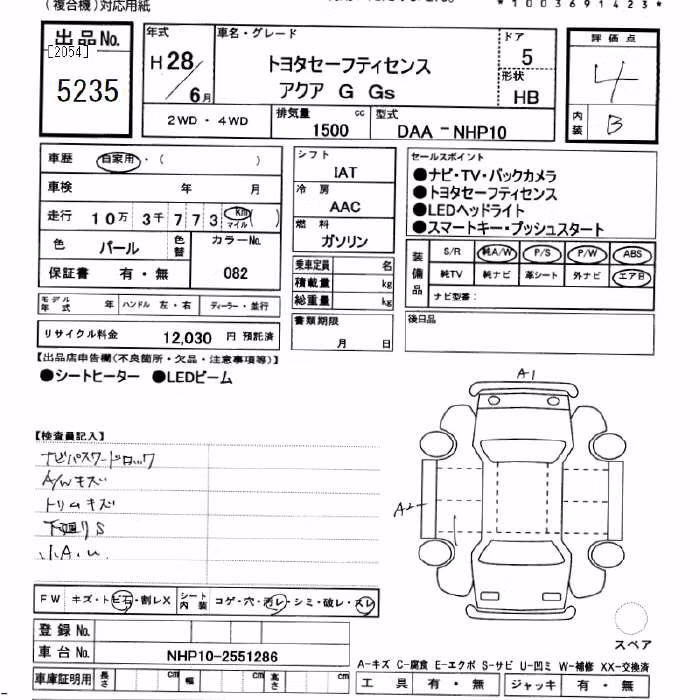 (複合機)対応用紙
*1003691423*
出品No.
[2054]
5235
年式
H28/6月
車名・グレード
トヨタセーフティセンス
アクア G Gs
ドア
5
形状
HB
評価点
4
内装 B
2WD・4WD
排気量
1500 cc
型式
DAA-NHP10
車歴 自家用・( )
車検 年 月
走行 10万 3千 7 7 3 km マイル ( )
色 パール 色替 カラーNo.
保証書 有・無 082
モデル年式 年 ハンドル 左・右 ディーラー・並行
リサイクル料金 12,030 円 預託済
シフト
IAT
冷房
AAC
燃料
ガソリン
乗車定員 名
積載量 kg
総重量 kg
書類期限
月 日
セールスポイント
●ナビ・TV・バックカメラ
●トヨタセーフティセンス
●LEDヘッドライト
●スマートキー・プッシュスタート
装備品
S/R 純A/W P/S P/W ABS
純TV 純ナビ 革シート 外ナビ エアB
ナビ型番:
後日品
【出品店申告欄(不良箇所・欠品・注意事項等)】
●シートヒーター ●LEDビーム
【検査員記入】
ナビパスワードロック
A/Wキズ
トリムキズ
下廻りS
小A.U.
A1
A2
FW キズ・トビ石・割レX シート内装 コゲ・穴・汚レ・シミ・破レ・スレ
登録No.
車台No. NHP10-2551286
車庫証明用 長さ cm 幅 cm 高さ cm
スペア
A-キズ C-腐食 E-エクボ S-サビ U-凹ミ W-補修 XX-交換済
工具 有・無 ジャッキ 有・無